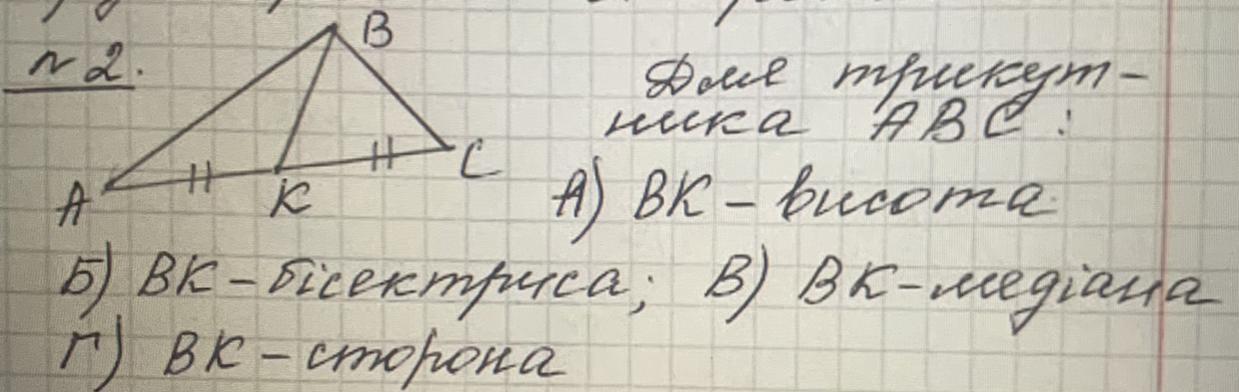 №2.
B
A
K
C
Для трикут-
ника ABC:
А) BK – висота
Б) BK – бісектриса; В) BK – медіана
Г) BK – сторона